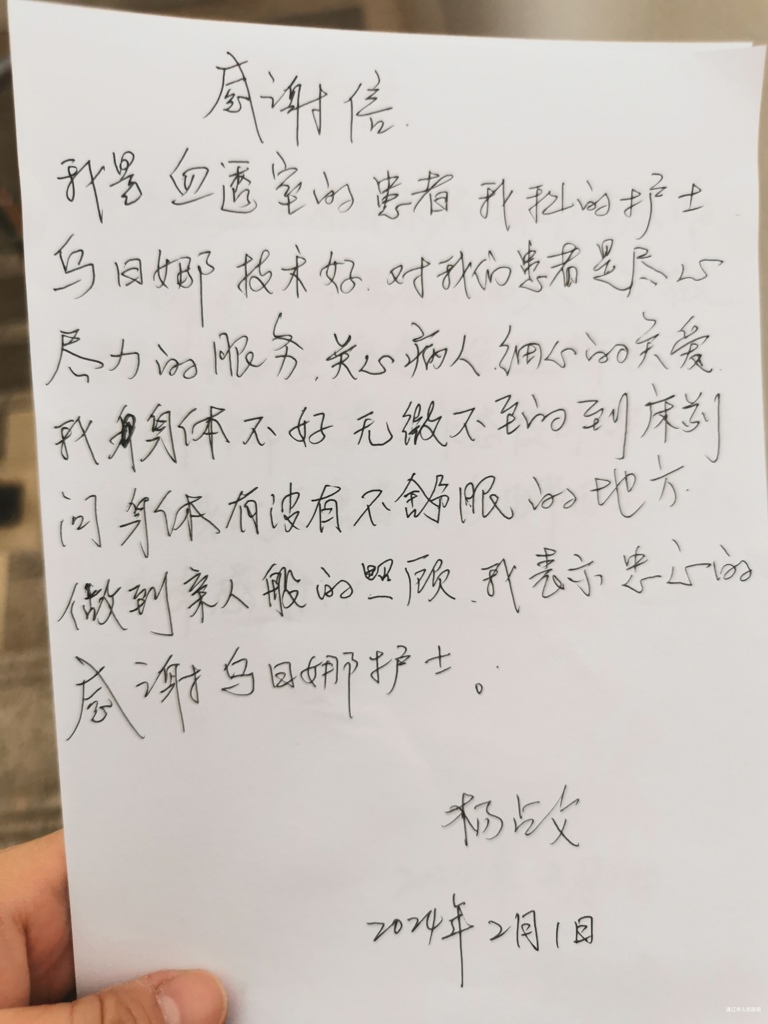 感谢信.
我是血透室的患者 我班的护士
乌日娜 技术好. 对我们患者是尽心
尽力的服务. 关心病人. 细心的关爱.
我身体不好 无微不至的到床前
问身体有没有不舒服的地方.
做到亲人般的照顾. 我表示忠心的
感谢乌日娜护士。
杨占文
2024年2月1日